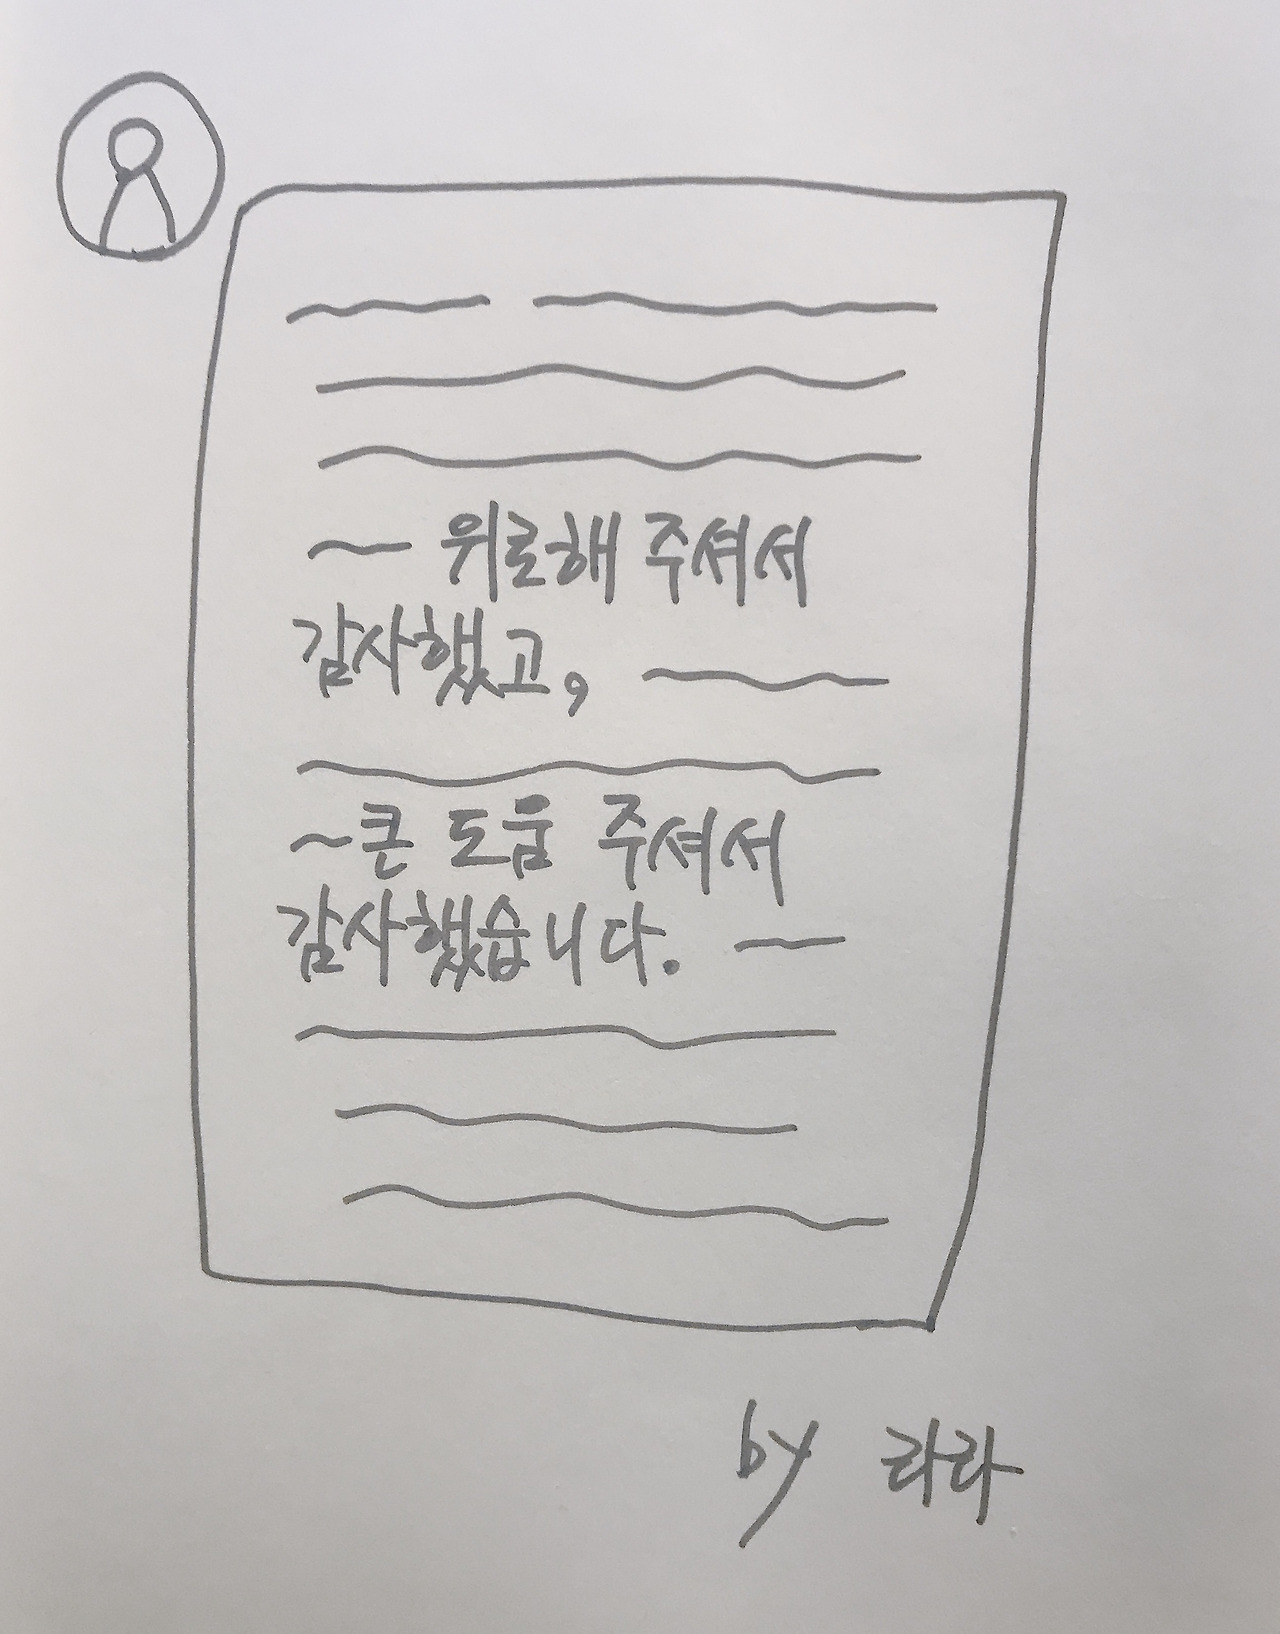 ~ 위로해 주셔서
감사했고,
~큰 도움 주셔서
감사했습니다.
by 라라